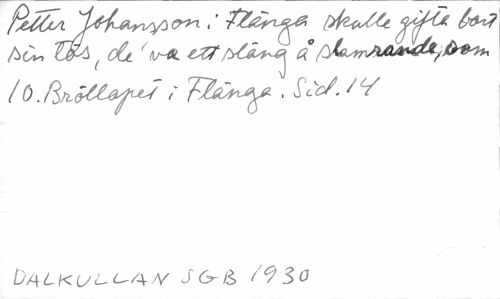 Petter Johansson i Flänga skulle gifta bort
sin tös, de' va ett släng å slamrande, som
10. Bröllopet i Flänga. Sid. 14
DALKULLAN SGB 1930